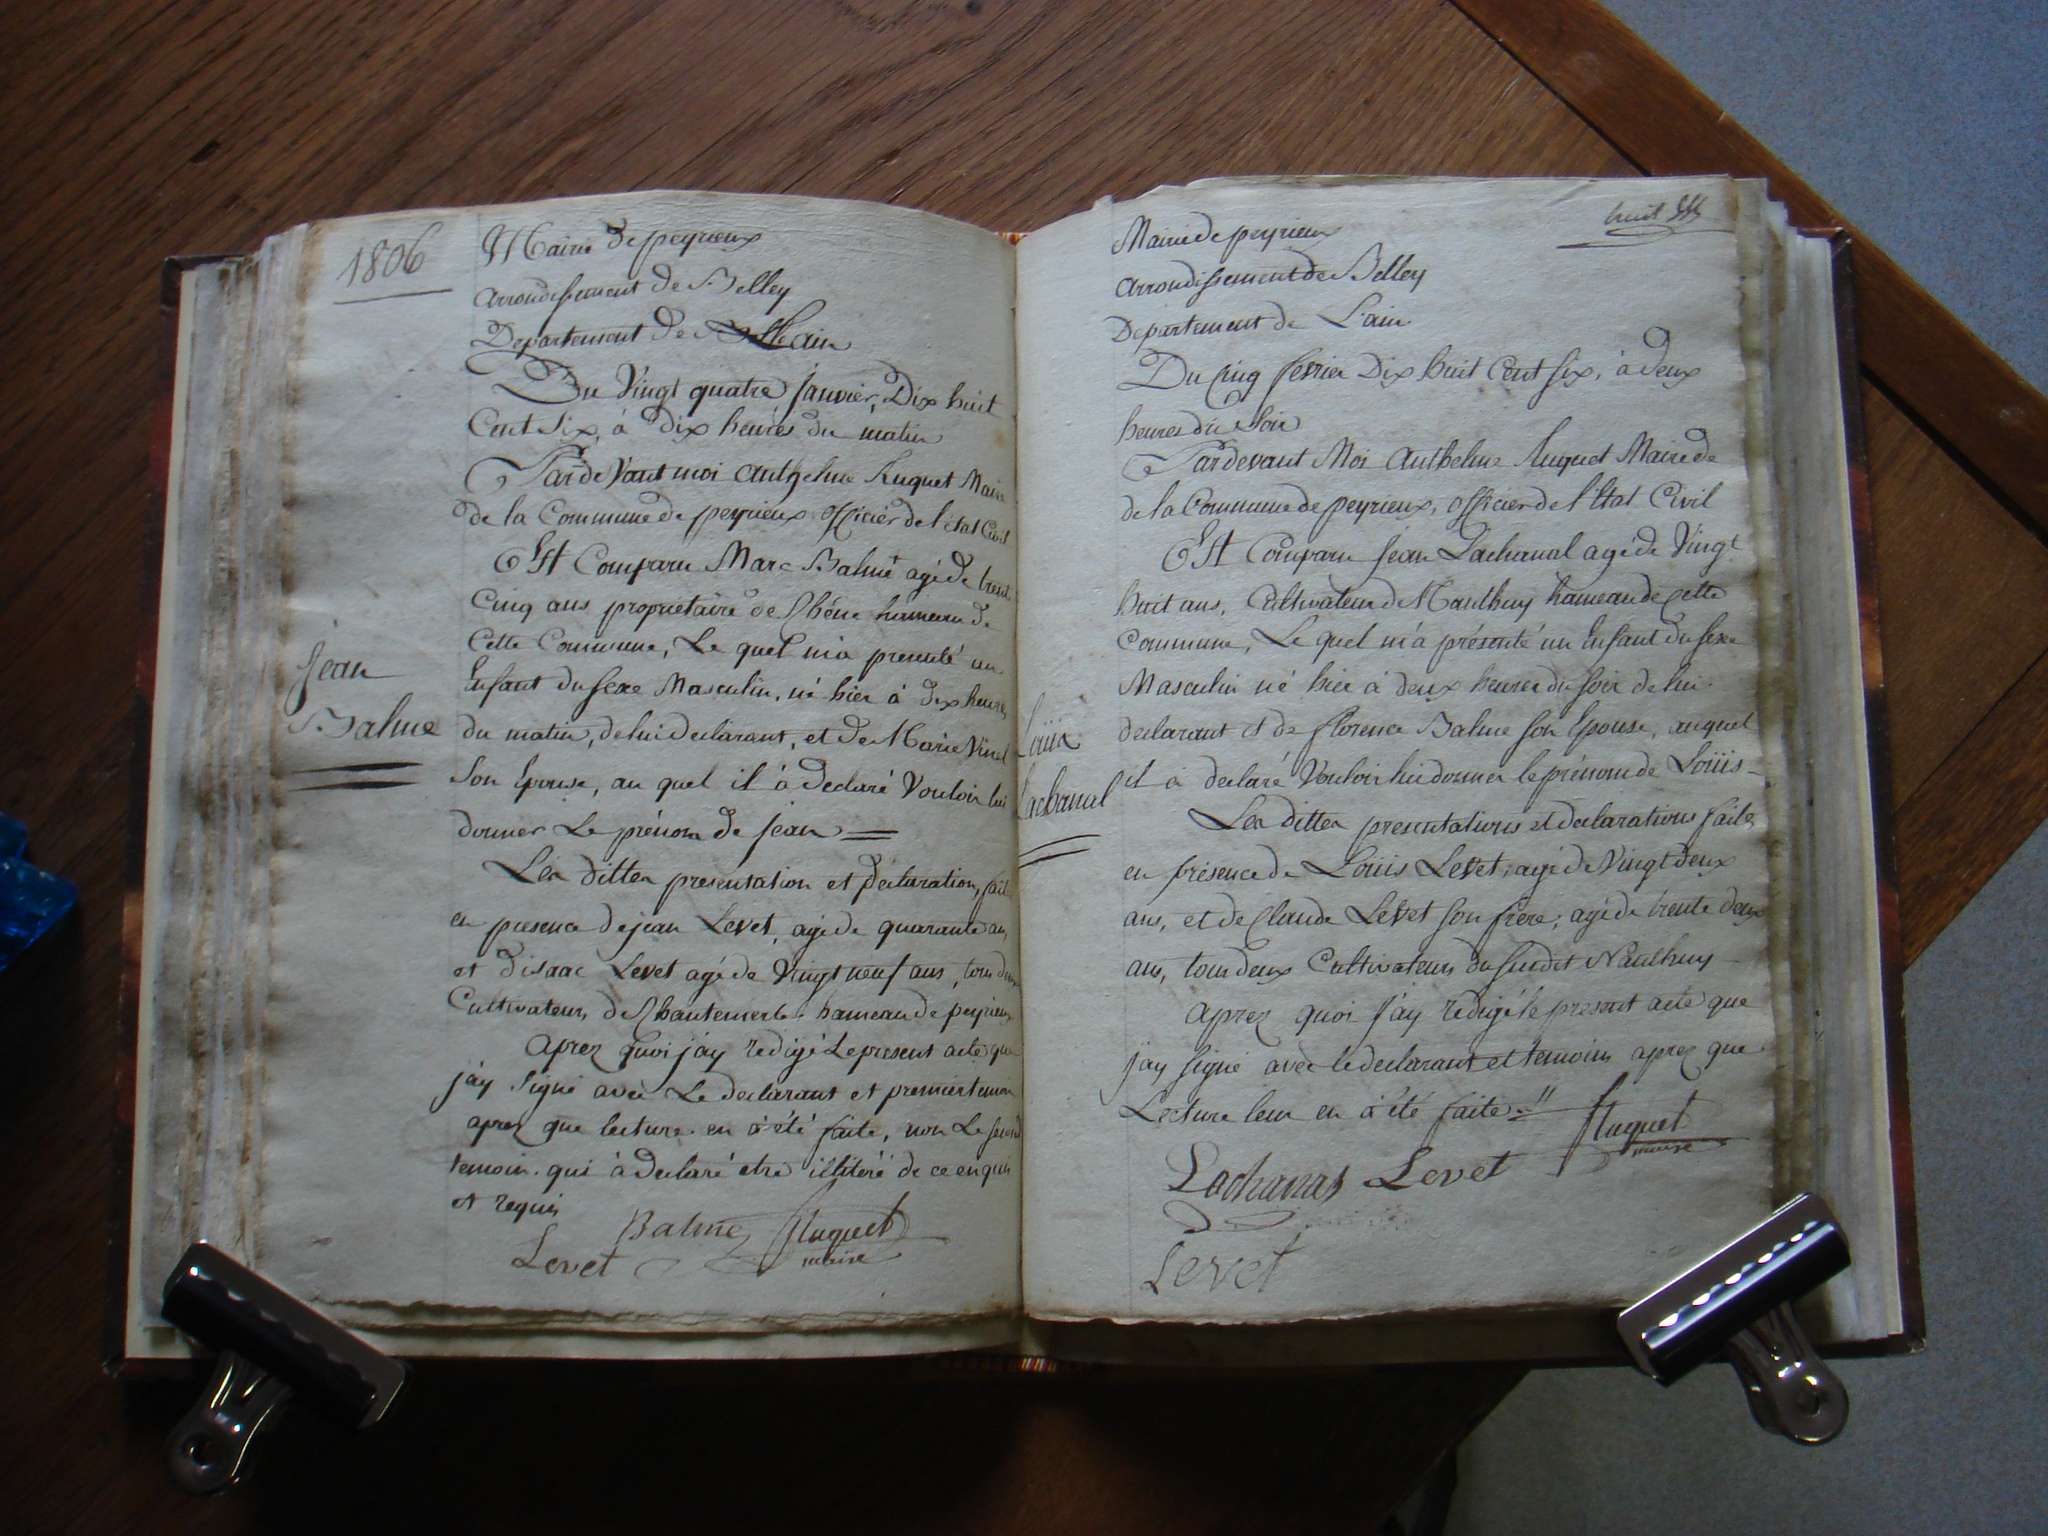 1806
Mairie de peyrieux
arrondissement de Belley
Departement de Lain
Du Vingt quatre janvier, Dix huit
Cent Six, à Dix heures du matin
Pardevant moi anthelme huguet Maire
de la Commune de peyrieux officier de l'état Civil
Est Comparu Marc Balme agé de trente
Cinq ans propriétaire de Chêne hameau de
Cette Commune, Le quel m'a presenté un
Enfant du sexe Masculin, né hier à dix heures
du matin, de lui declarant, et de Marie Vinel
Son Epouse, au quel il à declaré Vouloir lui
donner Le prénom de jean
Jean
Balme
Les dittes presentation et declaration, fait
en presence de jean Levet, agé de quarante ans,
et d'isaac Levet agé de Vingt neuf ans, tous deux
Cultivateurs, de Chantemerle hameau de peyrieux
aprez quoi j'ay redigé Le present acte que
j'ay signé avec Le declarant et premier temoin
aprez que lecture en à été faite, non Le second
temoin qui à declaré etre illiteré de ce enquis
et requis
Balme huguet
Levet maire
huit
Mairie de peyrieux
arrondissement de Belley
Departement de L'ain
Du Cinq fevrier Dix huit Cent six, à deux
heures du Soir
Pardevant Moi anthelme huguet Maire de
de la Commune de peyrieux, officier de l'Etat Civil
Est Comparu jean Lachanal agé de Vingt
huit ans, Cultivateur de Nanthuy hameau de cette
commune, Le quel m'a présenté un Enfant du sexe
Masculin né hier à deux heures du soir de lui
declarant et de florence Balme son Epouse, auquel
il à declaré Vouloir lui donner le prénom de Loüis
Loüis
Lachanal
Les dittes presentations et declarations faites
en présence de Loüis Levet, agé de Vingt deux
ans, et de Claude Levet son frere, agé de trente deux
ans, tous deux Cultivateurs du susdit Nanthuy
aprez quoi j'ay redigé le present acte que
j'ay signé avec le declarant et temoins aprez que
Lecture leur en à été faite
huguet
maire
Lachanal Levet
Levet